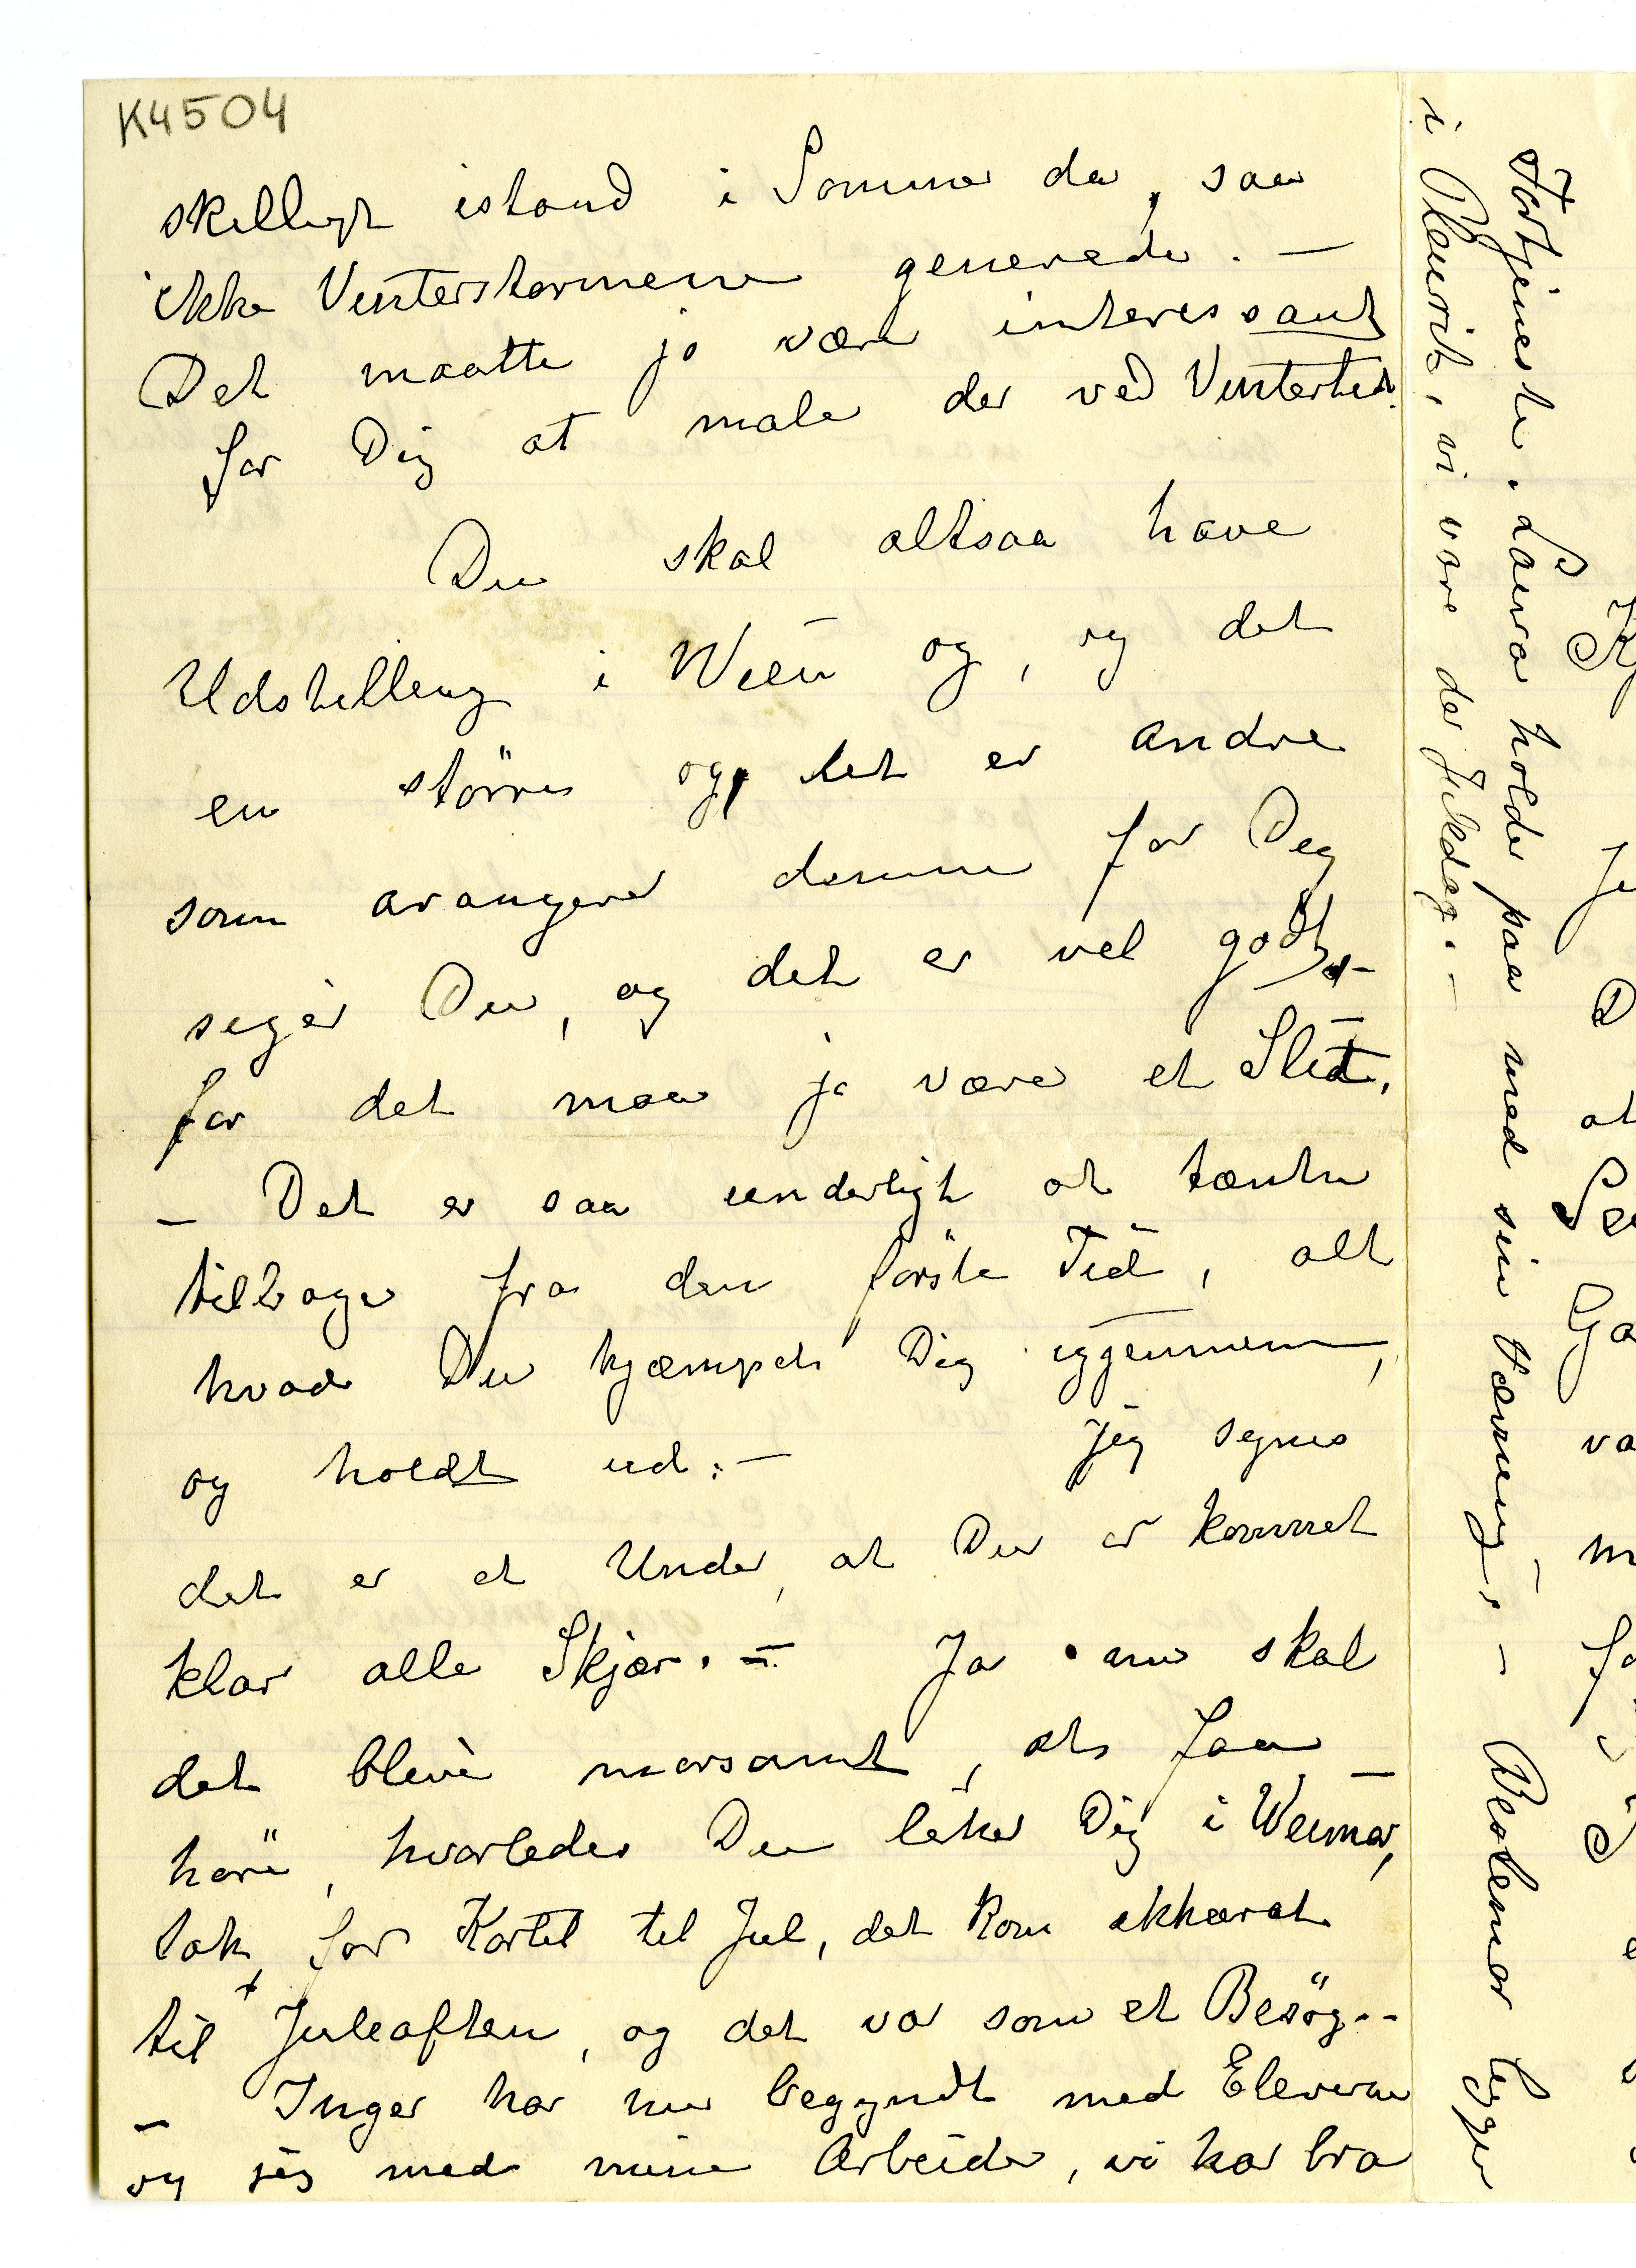 K4504
skelligt istand i Sommer der, saa
ikke Vinterstormene generede. —
Det maatte jo være interessant
for Dig at male der ved Vintertid.
Du skal altsaa have
Udstilling i Wien og, og det
en större og, det er andre
som arangerer denne for Dig
siger Du, og det er vel godt, —
for det maa jo være et Slid,
— Det er saa underligt at tænke
tilbage fra den förste Tid, alt
hvad Du kjæmpet Dig iggjennem,
og holdt ud. — jeg synes
det er et Under, at Du er kommet
klar alle Skjær. — Ja nu skal
det blive morsomt, at faa
höre, hvorledes Du liker Dig i Weimar,
Tak for Kortet til Jul, det kom akkurat
til Juleaften, og det var som et Besög. -
— Inger har nu begyndt med Eleverne
og jeg med mine Arbeider, vi har bra
Fortjeneste. Laura holder paa med sin Vævning. — Ragnemor ligger
i Pleurit, vi vare der Juledag. —